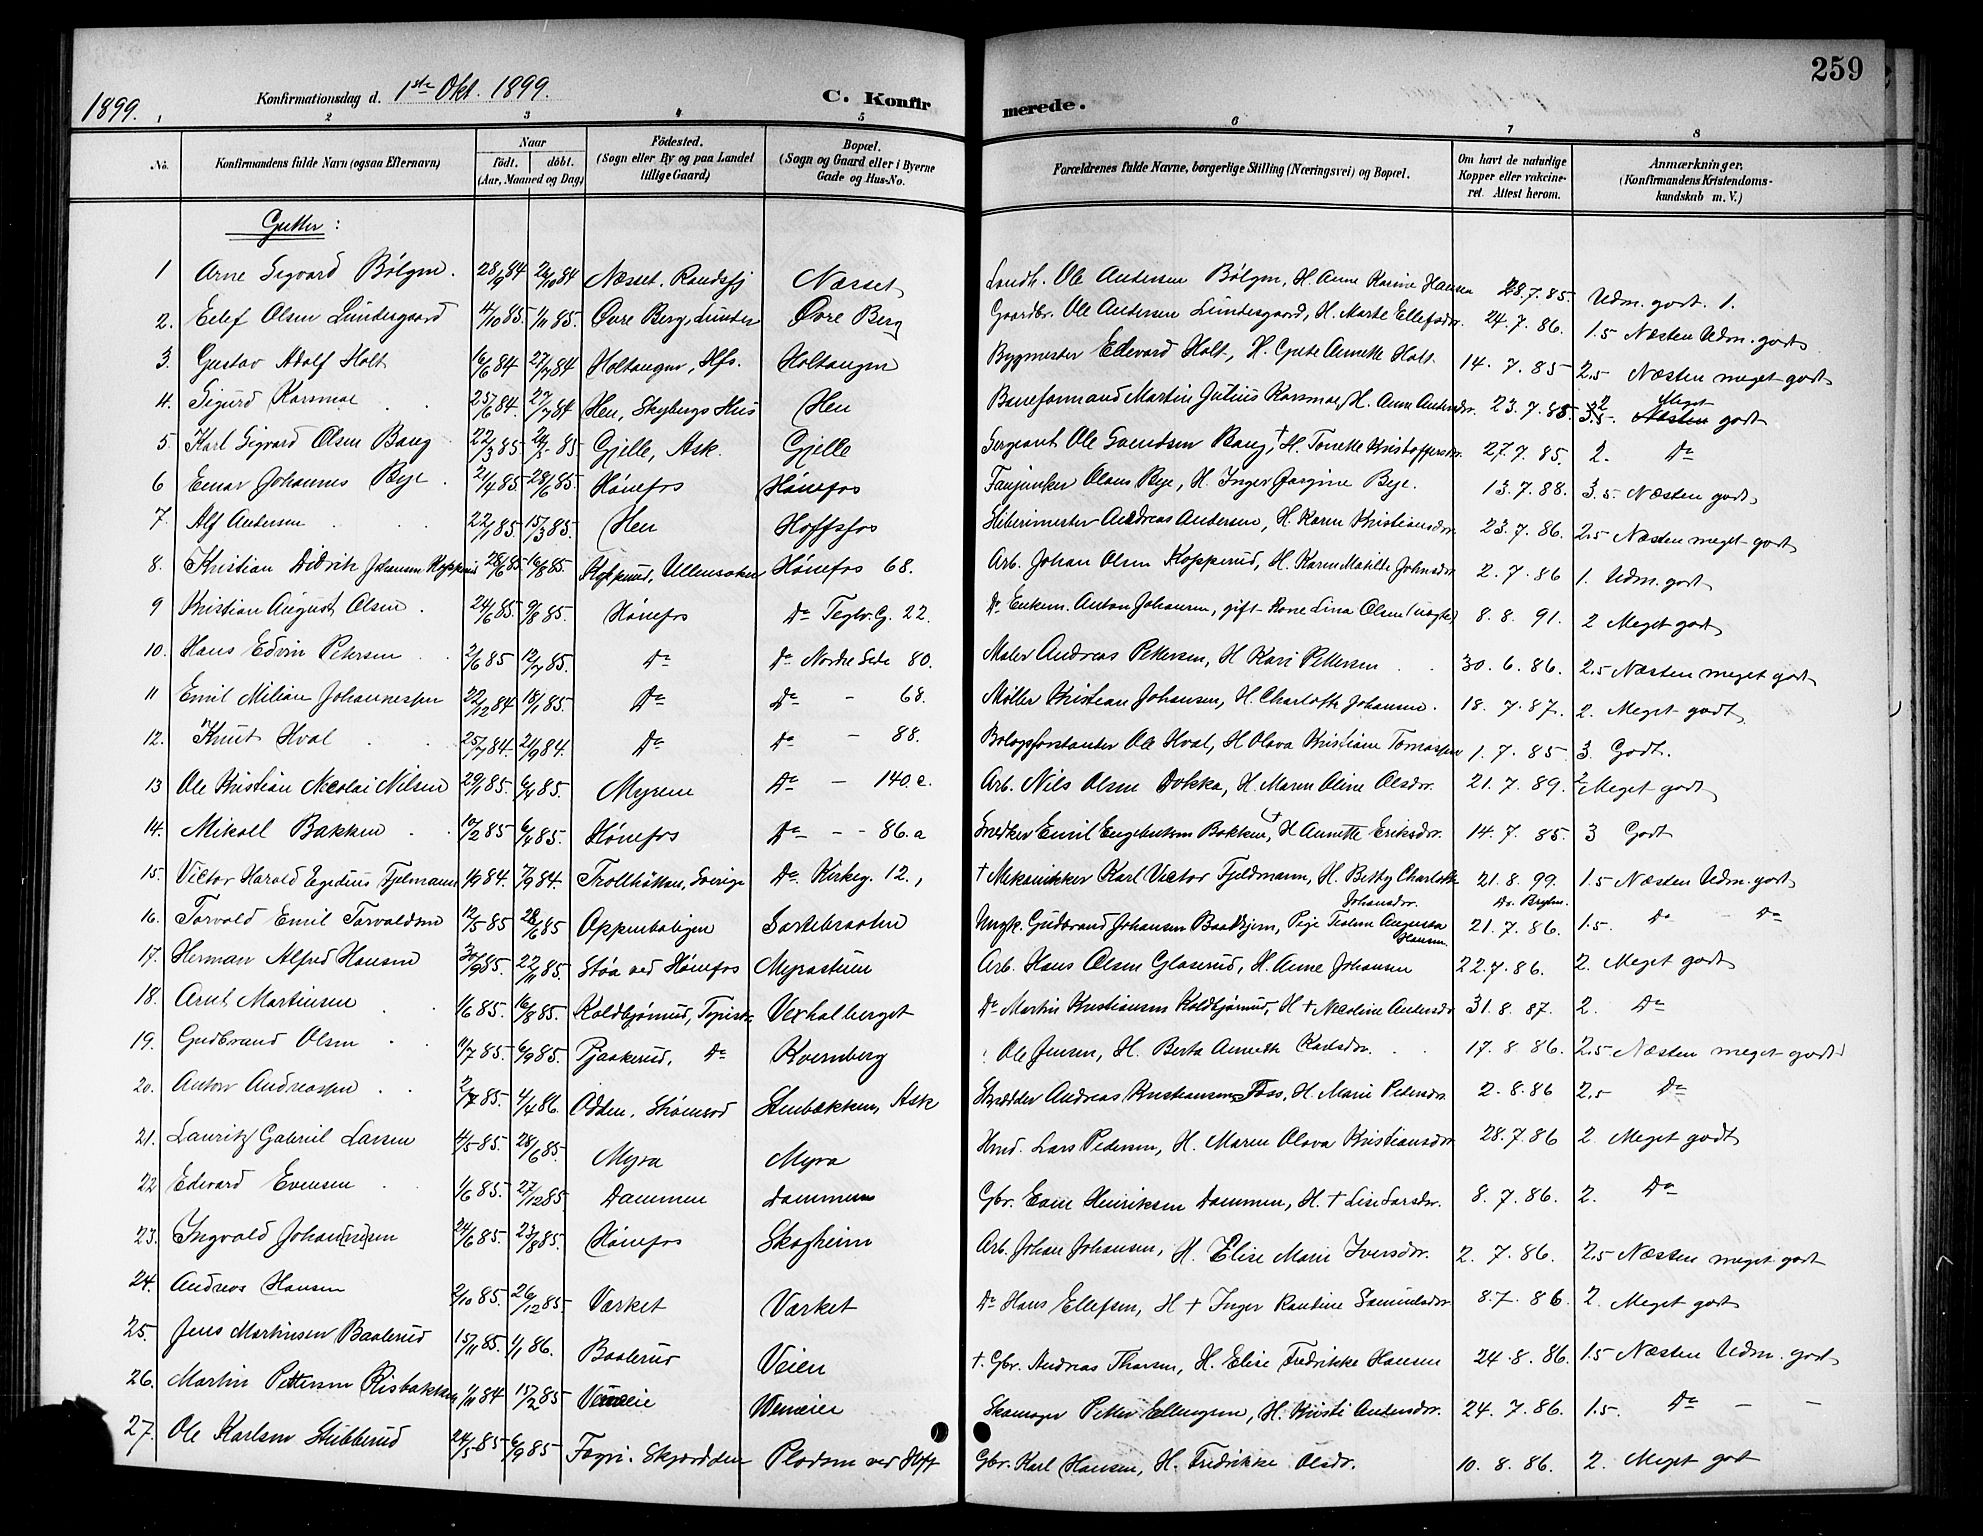 259
1899.
Konfirmationsdag d. 1ste Okt. 1899.
C. Konfir
merede.
1 2 3 4 5 6 7 8
No. Konfirmandens fulde Navn (ogsaa Efternavn) Naar født. døbt. (Aar, Maaned og Dag) Fødested. (Sogn eller By og paa Landet tillige Gaard) Bopæl. (Sogn og Gaard eller i Byerne Gade og Hus-No. Forældrenes fulde Navne, borgerlige Stilling (Næringsvei) og Bopæl. Om havt de naturlige Kopper eller vakcineret. Attest herom. Anmærkninger. (Konfirmandens Kristendomskundskab m. V.)
Gutter:
1 Arne Sigvard Bölgen. 28/9 84 26/10 84 Næsset. Randsfj Næsset Landh. Ole Andersen Bölgen, H. Anne Karine Hansen 28.7.85. Udm. godt. 1.
2. Eilef Olsen Lundesgaard 4/10 85. 1/11 85. Øvre Berg, Lunder Øvre Berg Gaardbr. Ole Andersen Lundesgaard, H. Marte Ellefsdr. 24.7.86. 1.5 Næsten Udm. godt
3. Gustav Adolf Holt 16/6 84 27/7 84 Holtangen, Hfs. Holtangen Bygmester Edevard Holt, H. Grete Annette Holt. 14.7.85 2.5 Næsten meget godt
4. Sigurd Korsmoe 25/6 84. 27/7 84 Hen, Skybergs Hus Hen Baneformand Martin Julius Korsmoe, H. Anne Andersdr. 23.7.85 2 Meget godt
5. Karl Sigvard Olsen Baug 22/3 85. 24/5 85 Gjelle, Ask. Gjelle Sergeant Ole Svendsen Baug, † H. Tonette Kristoffersdr. 27.7.85. 2. Do
6 Einar Johannes Bye 21/4 85. 28/6 85. Hönefos Hönefos Fanjunker Olaus Bye, H. Inger Jørgine Bye. 13.7.88. 3.5. Næsten godt
7. Alf Andersen 22/1 85. 15/3 85. Hen Hoffsfos Sliberimester Andreas Andersen, H. Karen Kristiansdr. 23.7.86. 2.5 Næsten meget godt
8. Kristian Didrik Johansen Kopperud 28/6 85 16/8 85. Kopperud, Ullensaker Hönefos 68. Arb. Johan Olsen Kopperud, H. Karen Matilde Johnsdr. 2.7.86 1. Udm. godt
9 Kristian August Olsen 24/6 85. 9/8 85. Hönefos Do Teglv. G. 22. Do Enkem. Anton Johansen, gift Kone Lina Olsen (uægte) 8.8.91. 2 Meget godt
10. Hans Edvin Petersen 2/6 85 12/7 85. Do Do Nordre Side 80. Maler Andreas Pettersen, H Kari Pettersen 30.6.86. 2.5 Næsten meget godt
11 Emil Milian Johannessen 22/12 84 18/1 85. Do Do - 68. Møller Kristian Johansen, H. Charlotte Johansen. 18.7.87. 2. Meget godt
12. Knut Hval 25/7 84. 21/9 84. Do Do - 88. Bolagsforstander Ole Hval, H Olava Kristiane Tomassen 1.7.85 3 Godt.
13 Ole Kristian Nicolai Nilsen 29/1 85. 6/4 85. Myrene Do - 140 c. Arb. Nils Olsen Dokka, H. Maren Oline Olsdr. 21.7.89. 2 Meget godt
14. Mikall Bakken 10/2 85 6/4 85. Hönefos Do - - 86.a Snedker Emil Engebretsen Bakken, H Annette Eriksdr. 14.7.85. 3 Godt
15. Victor Harald Egedius Fjelmann 1/9 84. 7/9 84. Trollhöttan, Sverige Do Kirkeg. 12., † Mekanikker Karl Victor Fjeldmann, H. Betty Charlotte Johansdr. 21.8.99. 1.5 Næsten Udm. godt
16. Torvald Emil Torvaldsen 12/5 85 28/6 85 Oppenboligen Sættebraaten Ungk. Gudbrand Johansen Baadhjem, Pige Teoline Augusta Hansen. 21.7.86. 1.5. Do - Do
17. Herman Alfred Hansen 30/9 85. 22/11 85. Støa ved Hönefos Myrastuen Arb. Hans Olsen Glaserud, H. Anne Johansen 22.7.86. 2. Meget godt
18. Arnt Martinsen 1/6 85. 16/8 85. Koldbjørnrud, Vexhalberget Do Martin Kristiansen Koldbjørnrud, H † Nicoline Andersdr 31.8.87. 2. Do
19. Gudbrand Olsen 11/7 85. 6/9 85. Pjaakerud, Do Kvernberg Ole Jensen, H. Berta Annette Karlsdr. 17.8.86. 2.5 Næsten meget godt
20. Anton Andreassen 2/7 85. 4/4 86. Odden, Stenbækken, Ask Skrædder Andreas Kristiansen Foss, H. Marie Pedersdr. 2.8.86 2.5 Do
21. Lauritz Gabriel Larsen 4/5 85. 28/6 85. Myra Myra Hmd. Lars Pedersen, H. Maren Olava Kristiansdr. 28.7.86 2. Meget godt
22 Edevard Evensen 1/6 85. 27/12 85. Dammen Dammen Gbr. Even Henriksen Dammen, H. † Lise Larsdr. 8.7.86. 2. Do
23. Ingvald Johan[ne]sen 24/6 85. 23/8 85. Hönefos Skogheim Arb. Johan Johansen, H. Elise Marie Iversdr. 2.7.86. 2.5 Næsten meget godt
24. Andreas Hansen 2/10 85. 26/12 85. Værket Værket Do Hans Ellefsen, H † Inger Randine Samuelsdr 8.7.86. 2. Meget godt
25. Jens Martinsen Baalerud 15/11 85. 1/1 86. Baalerud Veien † Gbr. Andreas Thorsen, H. Elise Fredrikke Hansen 24.8.86. 1.5 Næsten Udm. godt
26. Martin Pettersen Risbakken 1/11 84 15/2 85 Veneie Skomager Petter Ellingsen, H. Kristi Andersdr. 24.7.86. 1.5. Do - -
27. Ole Karlsen Stubberud 24/5 85 6/9 85 Plodsen ved Hoff Gbr. Karl Hansen, H. Fredrikke Olsdr. 10.8.86. 2. Meget godt